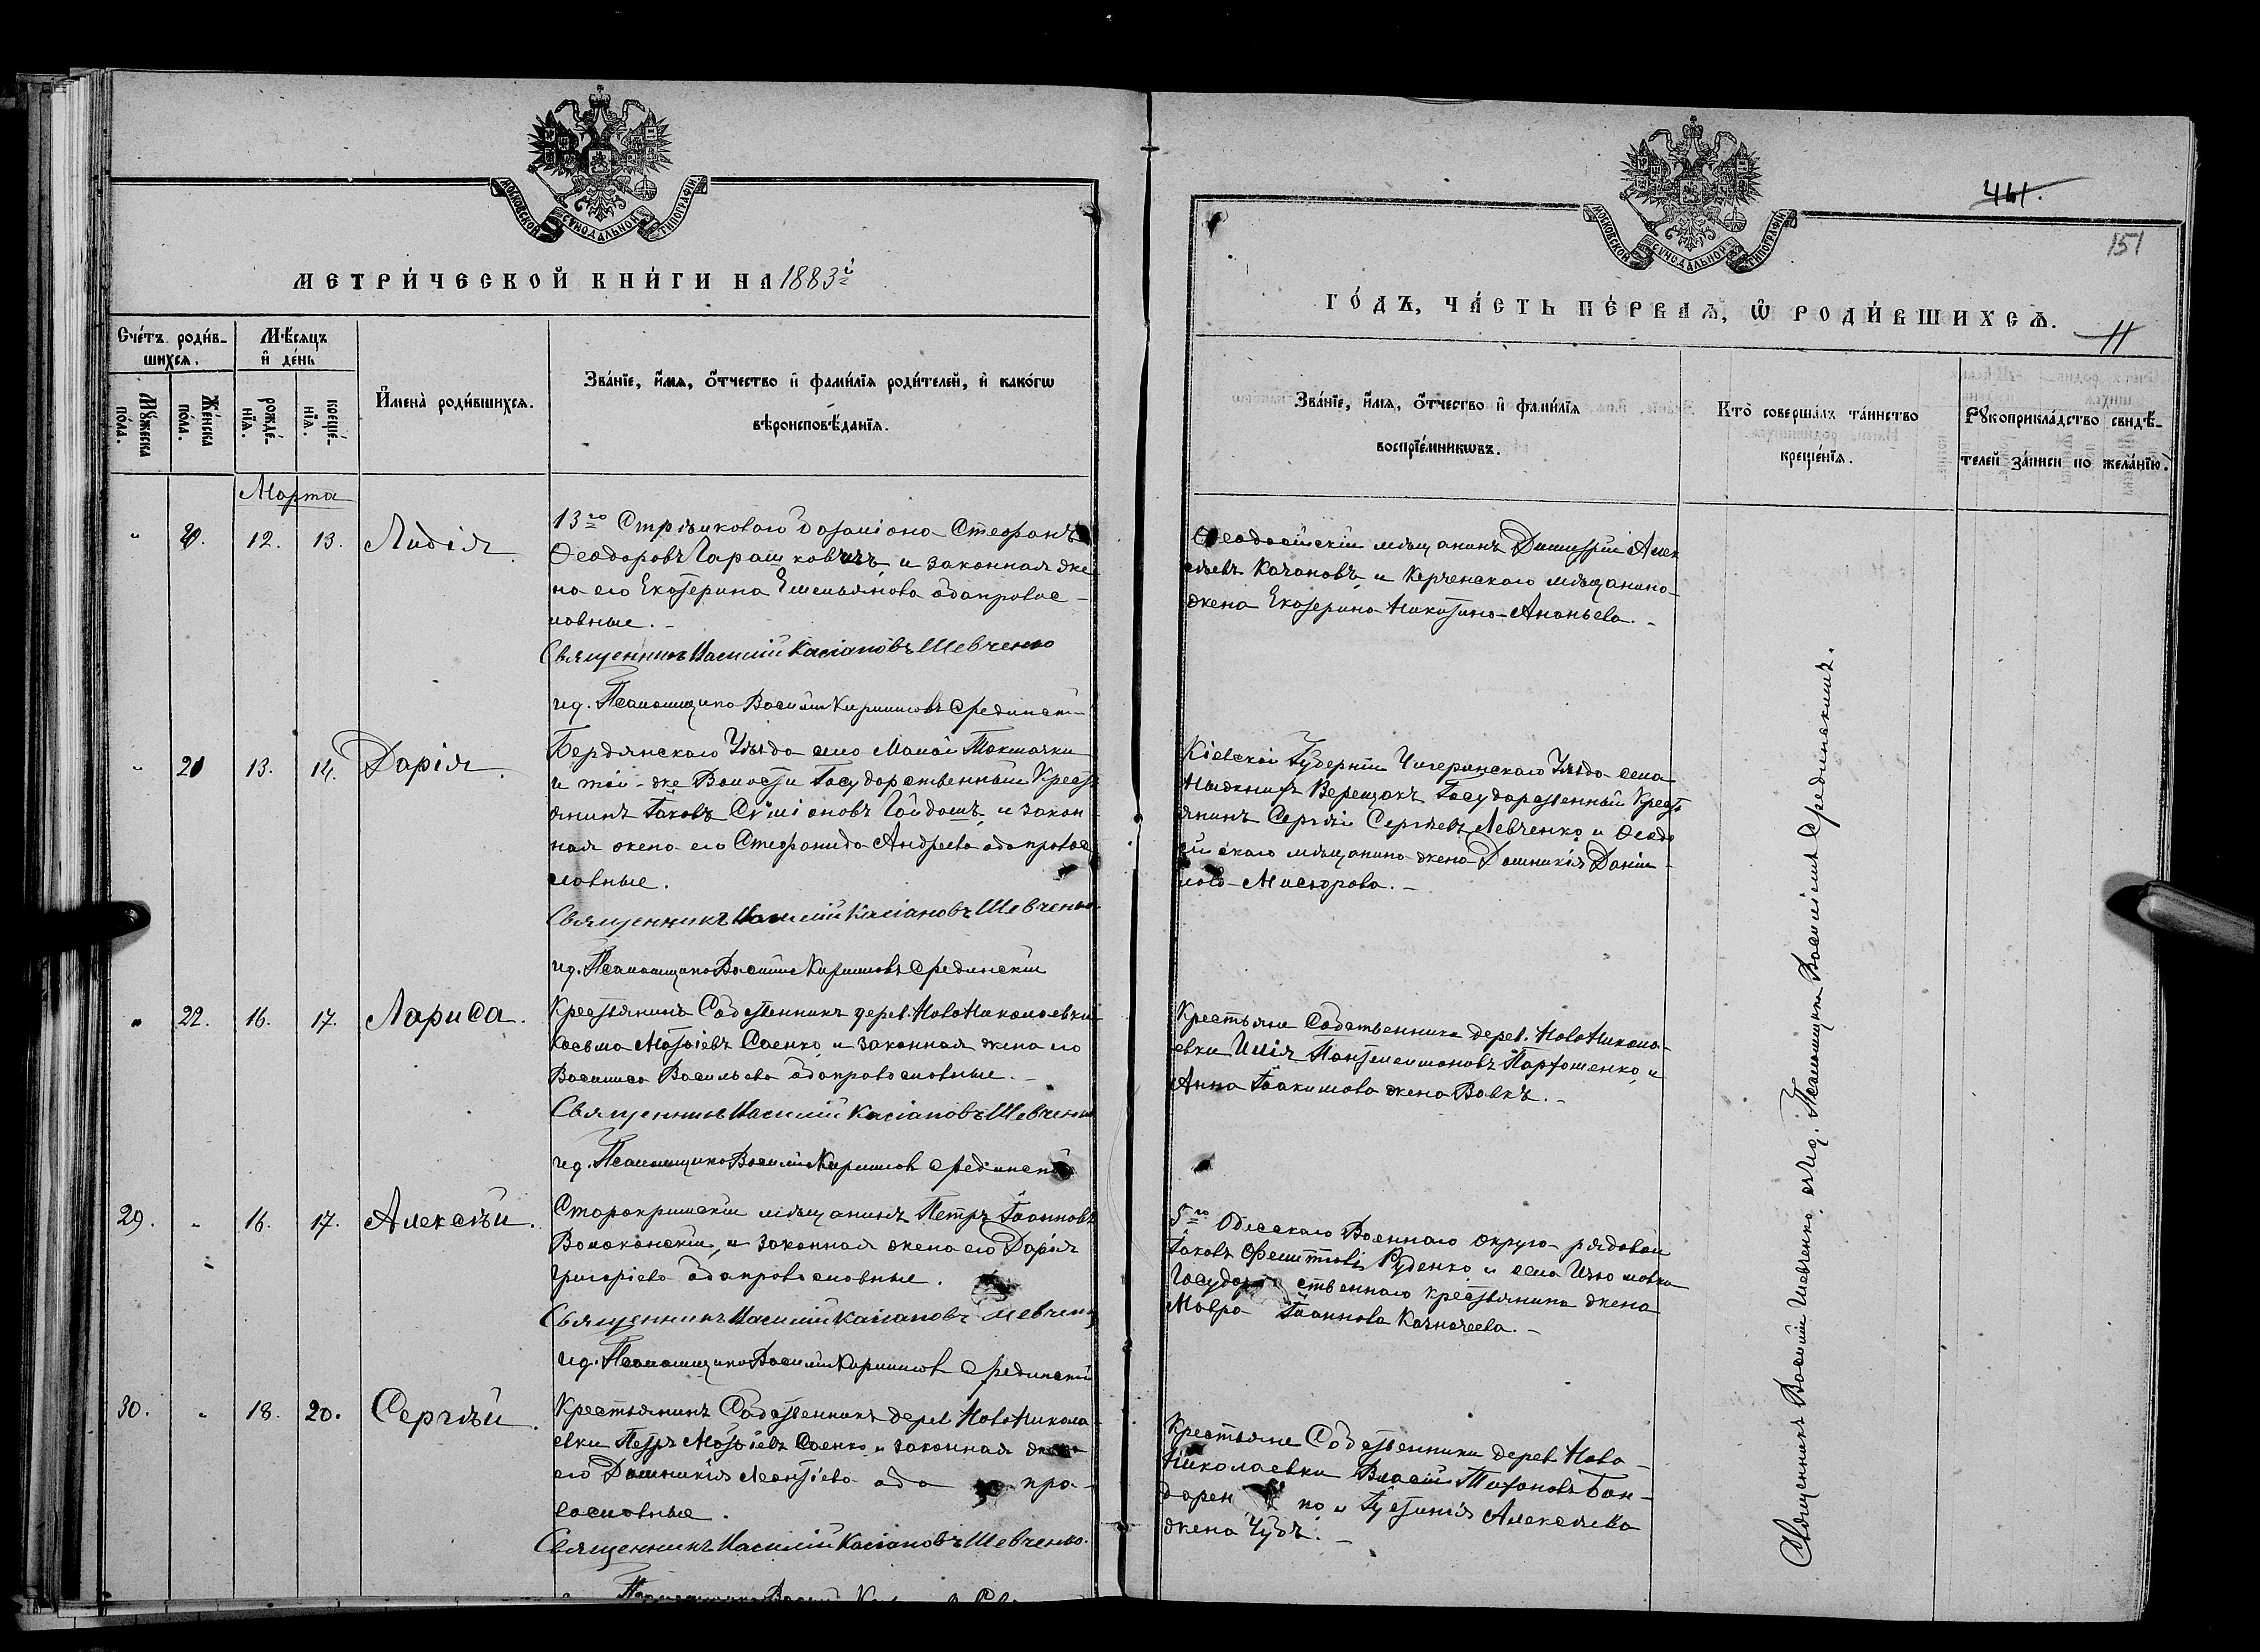 МОСКОВСКОЙ СѴНОДАЛЬНОЙ ТИПОГРАФІИ
МЕТРИ́ЧЕСКОЙ КНИ́ГИ НА 1883й
Сче́тъ роди́в-
шихся.
Мꙋ́жеска
по́ла.
Же́нска
по́ла.
Мѣ́сяцъ
и҆ де́нь
рожде́-
нїѧ.
креще́-
нїѧ.
И҆мена̀ роди́вшихсѧ.
Зва́нїе, и҆́мѧ, о҆́тчество и҆ фами́лїѧ роди́телей, и҆ како́гѡ
вѣроисповѣ́данїѧ.
Марта
" 20. 12. 13. Лидія
13го Стрѣлковаго баталіона Стефанъ
Ѳеодоровъ и законная же
на его Екатерина Емельянова оба правос-
лавные.-
Священникъ Василій Касіановъ Шевченко
и.д. Псаломщика Василій Кирилловъ Срединскій
" 21 13. 14. Дарія.
Бердянскаго Уѣзда села Малой Токмачки
и той-же Волости Государственный Кресть
янинъ Іаковъ Сѵміоновъ Гайдашъ, и закон
ная жена его Стефанида Андреева оба правос
лавные.
Священникъ Василій Касіановъ Шевченко
и.д. Псаломщика Василій Кирилловъ Срединскій
" 22. 16. 17. Лариса.
Крестьянинъ Собственникъ дерев. НовоНиколаевки
Косьма Матѳіевъ Саенко, и законная жена его
Василиса Васильева оба православные.-
Священникъ Василій Касіановъ Шевченко
и.д. Псаломщика Василій Кирилловъ Срединскій
29. " 16. 17. Алексѣй.
Старокрымскій мѣщанинъ Петръ Іоанновъ
Волоханскій, и законная жена его Дарія
Григоріева оба православные.
Священникъ Василій Касіановъ Шевченко
и.д. Псаломщика Василій Кирилловъ Срединскій
30. " 18. 20. Сергѣй.
Крестьянинъ Собственникъ дерев НовоНикола
евки Петръ Матѳіевъ Саенко, и законная жена
его Домникія Леонтіева оба пра-
вославные.
Священникъ Василій Касіановъ Шевченко.
МОСКОВСКОЙ СѴНОДАЛЬНОЙ ТИПОГРАФІИ
461.
151
ГО́ДЪ, ЧА́СТЬ ПЕ́РВАѦ, Ѡ҆ РОДИ́ВШИХСѦ.
11
Зва́нїе, и҆́мѧ, о҆́тчество и҆ фами́лїѧ
воспрїе́мникѡвъ.
Кто̀ соверша́лъ та́инство
креще́нїѧ.
Рꙋкоприкла́дство свидѣ́-
телей за́писи по жела́нїю.
Ѳеодосійскій мѣщанинъ Димитрій Алек
сѣевъ Качановъ, и Керченскаго мѣщанина-
жена Екатерина Никитина-Ананьева.-
Кіевской Губерніи Чигиринскаго Уѣзда села
Верещакъ Государственный Кресть
янинъ Сергѣй Сергѣевъ Левченко, и Ѳеодо
сійскаго мѣщанина жена Домникія Даніи-
лова-Мисюрова.-
Крестьяне Собственники дерев. НовоНикола-
евки Илія Пантелеимоновъ Пархоменко, и
Анна Іоакимова жена Вовкъ.-
5го Одесскаго Военнаго округа рядовой
Іаковъ Руденко и села Изюмовка
Государственнаго крестьянина жена
Мавра Іоаннова Казначеева.-
Крестьяне Собственники дерев Ново-
Николаевки Власій Бон-
даренко и Іустинія Алексѣева
жена Чубъ.-
Священникъ Василій Шевченко, съ и.д. Псаломщика Василіемъ Срединскимъ.